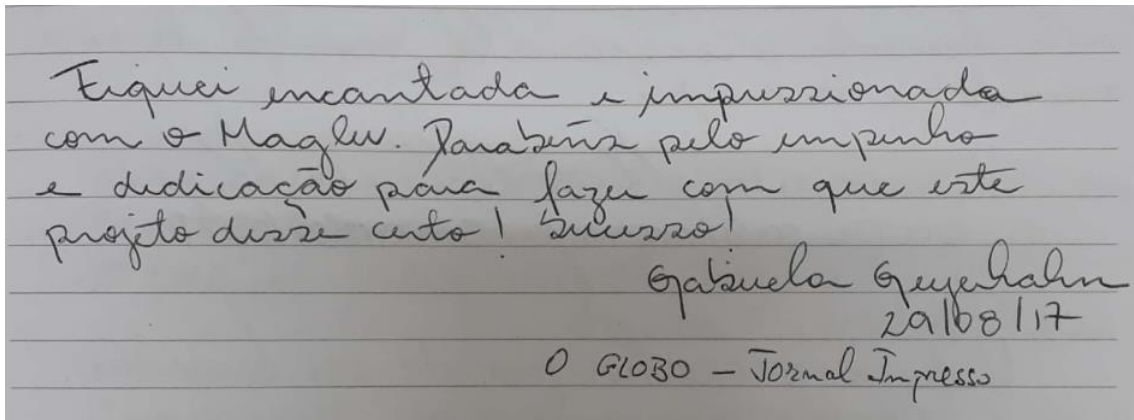 Fiquei encantada e impressionada
com o Maglev. Parabéns pelo empenho
e dedicação para fazer com que este
projeto desse certo! Sucesso!
Gabriela
29/08/17
O GLOBO - Jornal Impresso